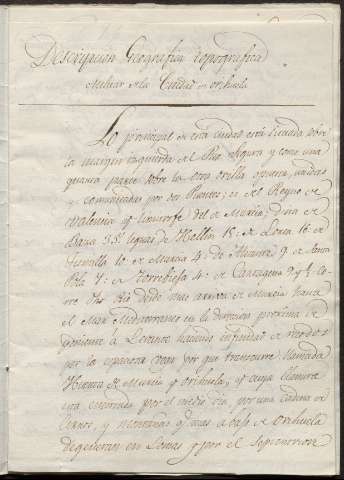 Descripcion Geografica topografica
militar de la Ciudad de orihuela
Lo principal de esta ciudad esta situada sobre
la margen izquierda del Rio Segura y como una
quarta parte sobre la otra orilla opuesta, unidas
y comunicadas por dos Puentes; es del Reyno de
Valencia y limitrofe del de Murcia; dista de
Baza 33 leguas de Hellin 18: de Lorca 16: de
Jumilla 10 de Murcia 4: de Alicante 9 de Santa
Pola 7: de Torrebieja 4: de Cartagena 9 y
rre dho Rio desde mas arriva de Murcia hasta
el Mar Mediterraneo en la direccion proxima de
poniente á Levante haciendo infinidad de recodos
por la espaciosa vega por que transcurre llamada
Huerta de Murcia y orihuela, y cuya llanura
esta cercada por el medio dia, por una cadena de
Cerros, y montañas q.e mas abajo de orihuela
degeneran en Lomas y por el Septentrion